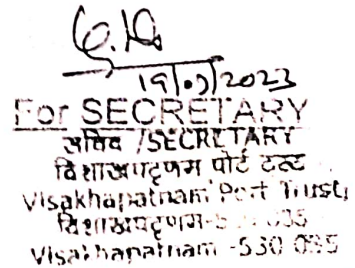 19/07/2023
For SECRETARY
सचिव /SECRETARY
विशाखपट्टणम पोर्ट ट्रस्ट
Visakhapatnam Port Trust,
विशाखपट्टणम-530 035
Visakhapatnam -530 035